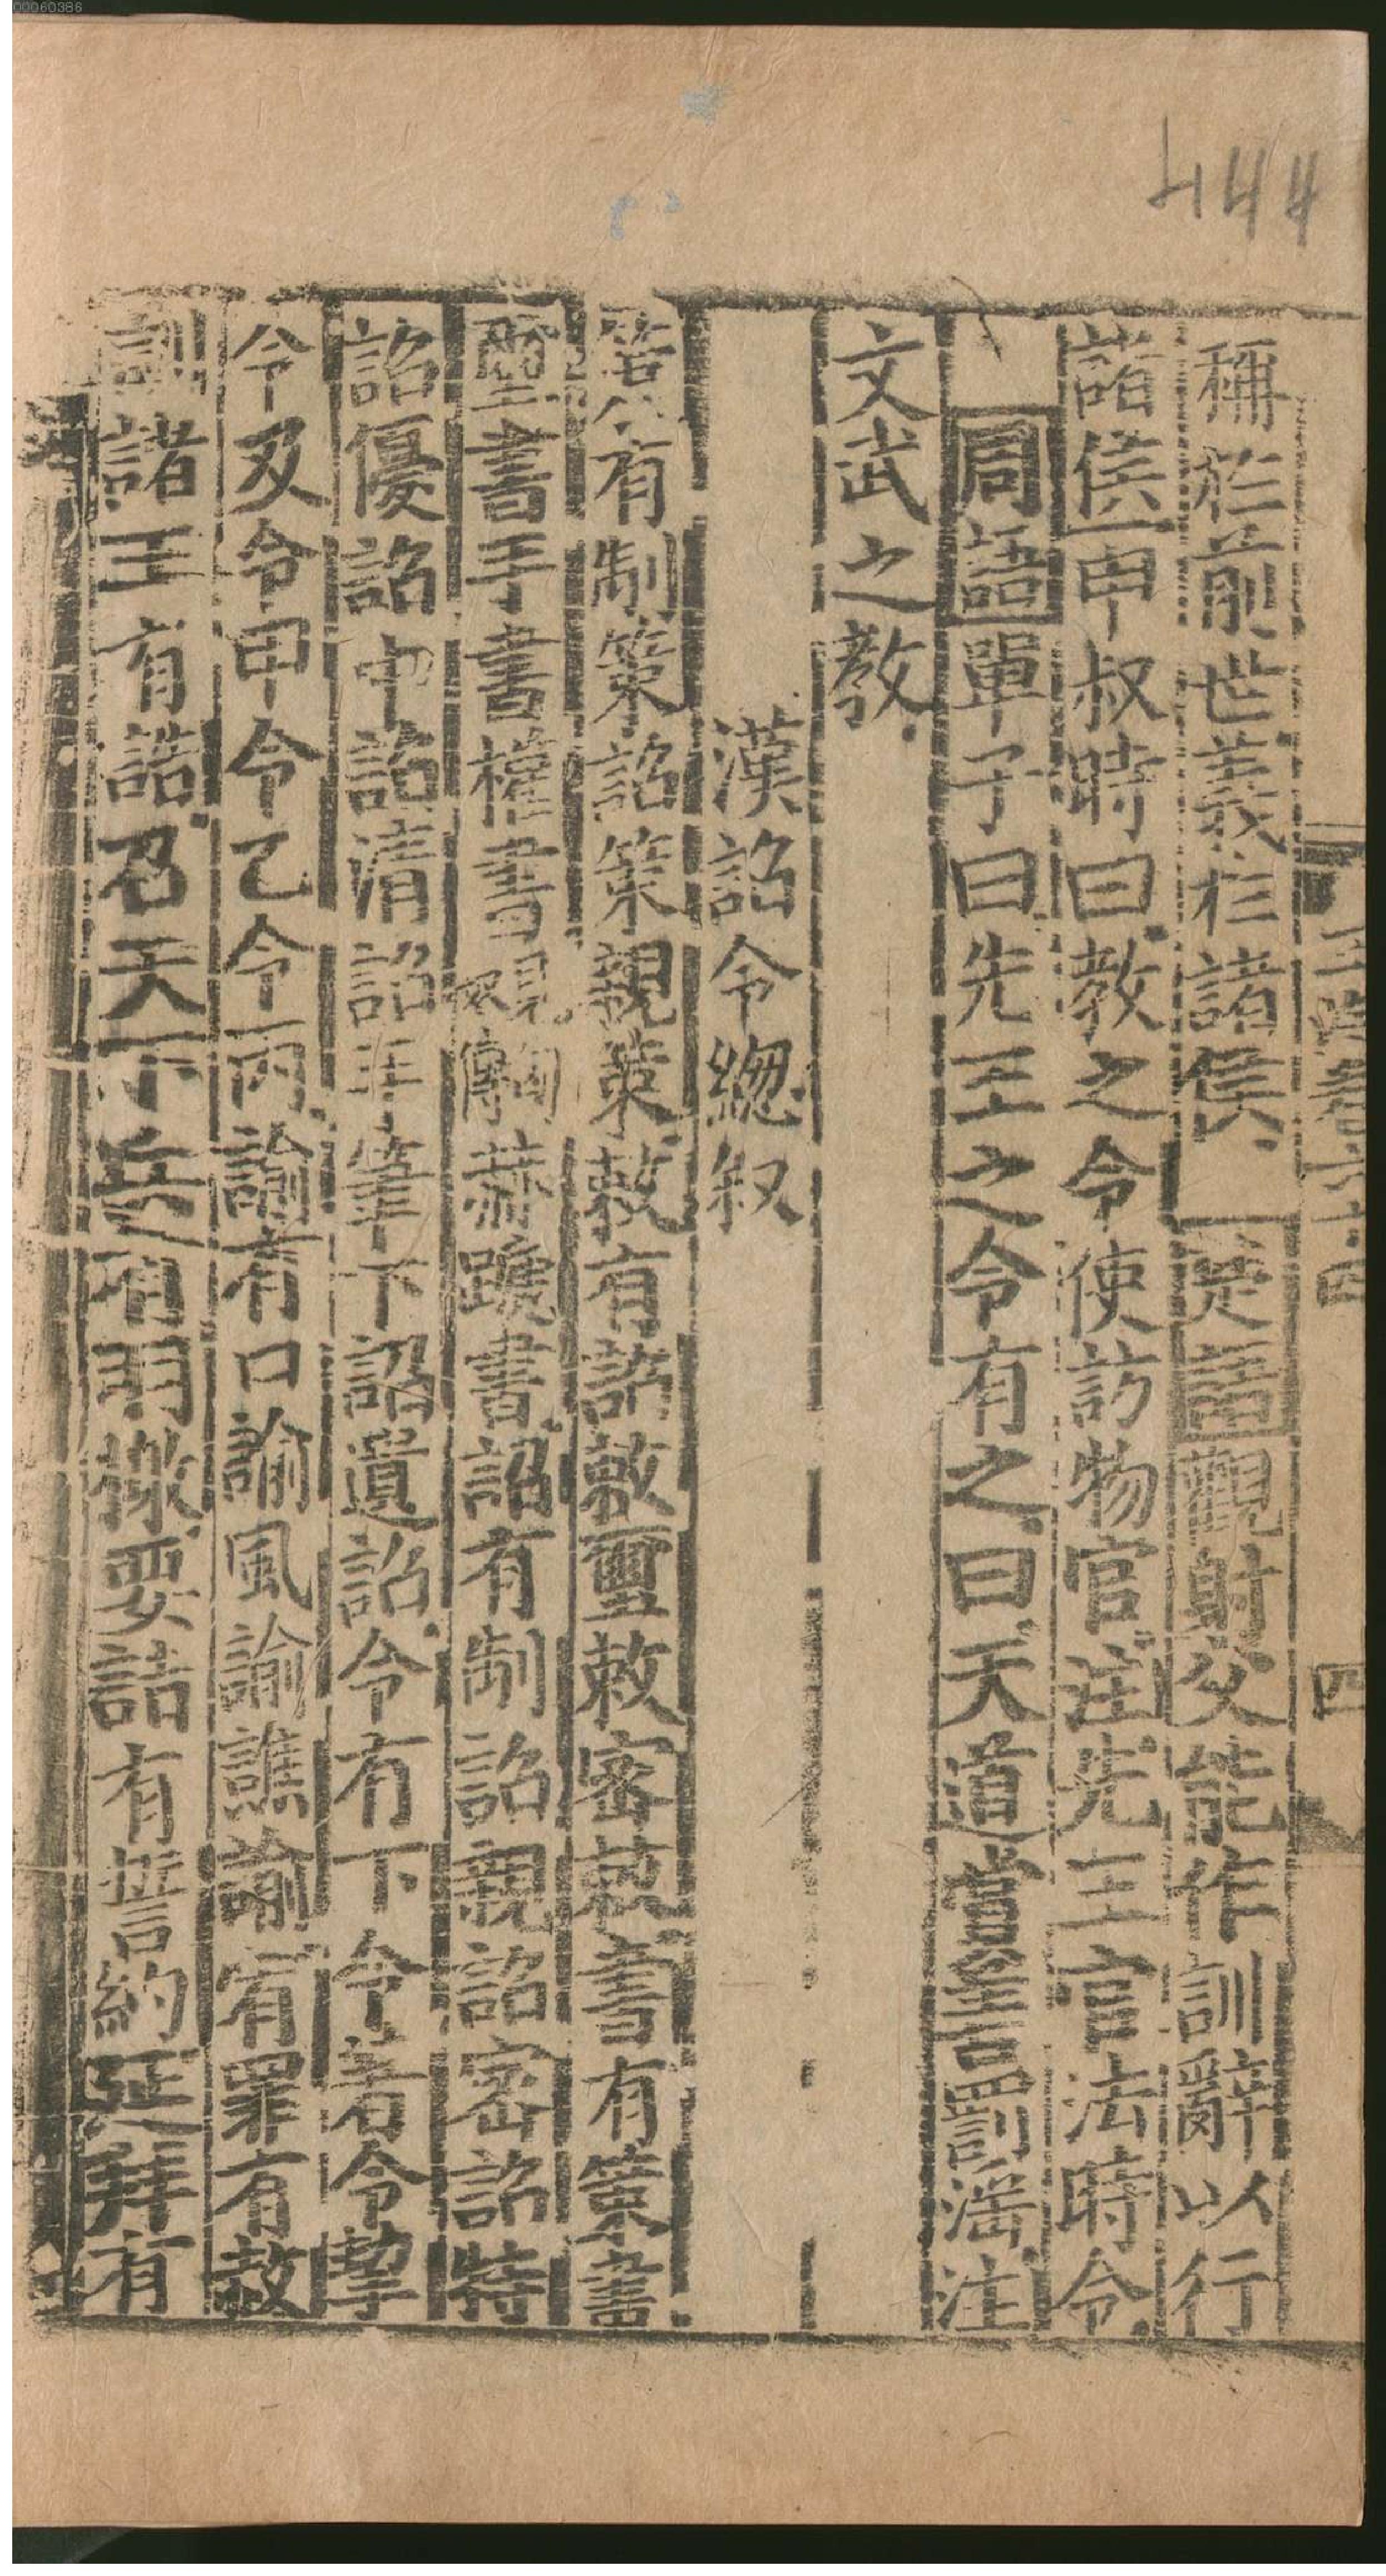 00060386
444
稱於前世義於諸侯楚語觀射父能作訓辭以行
諸侯申叔時曰教之令使訪物官注先王官法時令
周語單子曰先王之令有之曰天道賞善罰淫注
文武之教
漢詔令緫叙
策有制策詔策親策敕有詔敕璽敕密敕書有策書
璽書手書權書赫蹏書詔有制詔親詔密詔特
詔優詔中詔清詔手筆下詔遺詔令有下令著令挈
令及令甲令乙令丙諭有口諭風諭譙諭宥罪有赦
訓諸王有誥召天下兵有羽檄要誥有誓約延拜有
玉海卷六十四
四